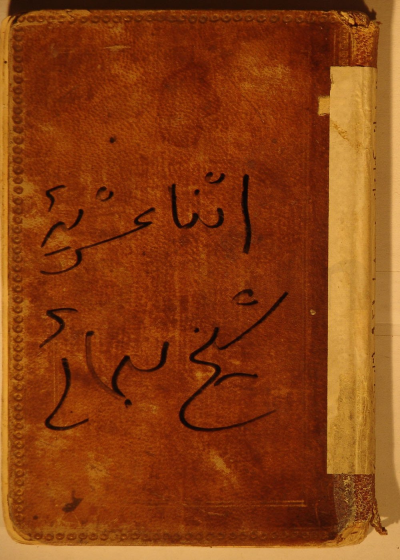 اثنا عشریهٔ
شیخ بهائی